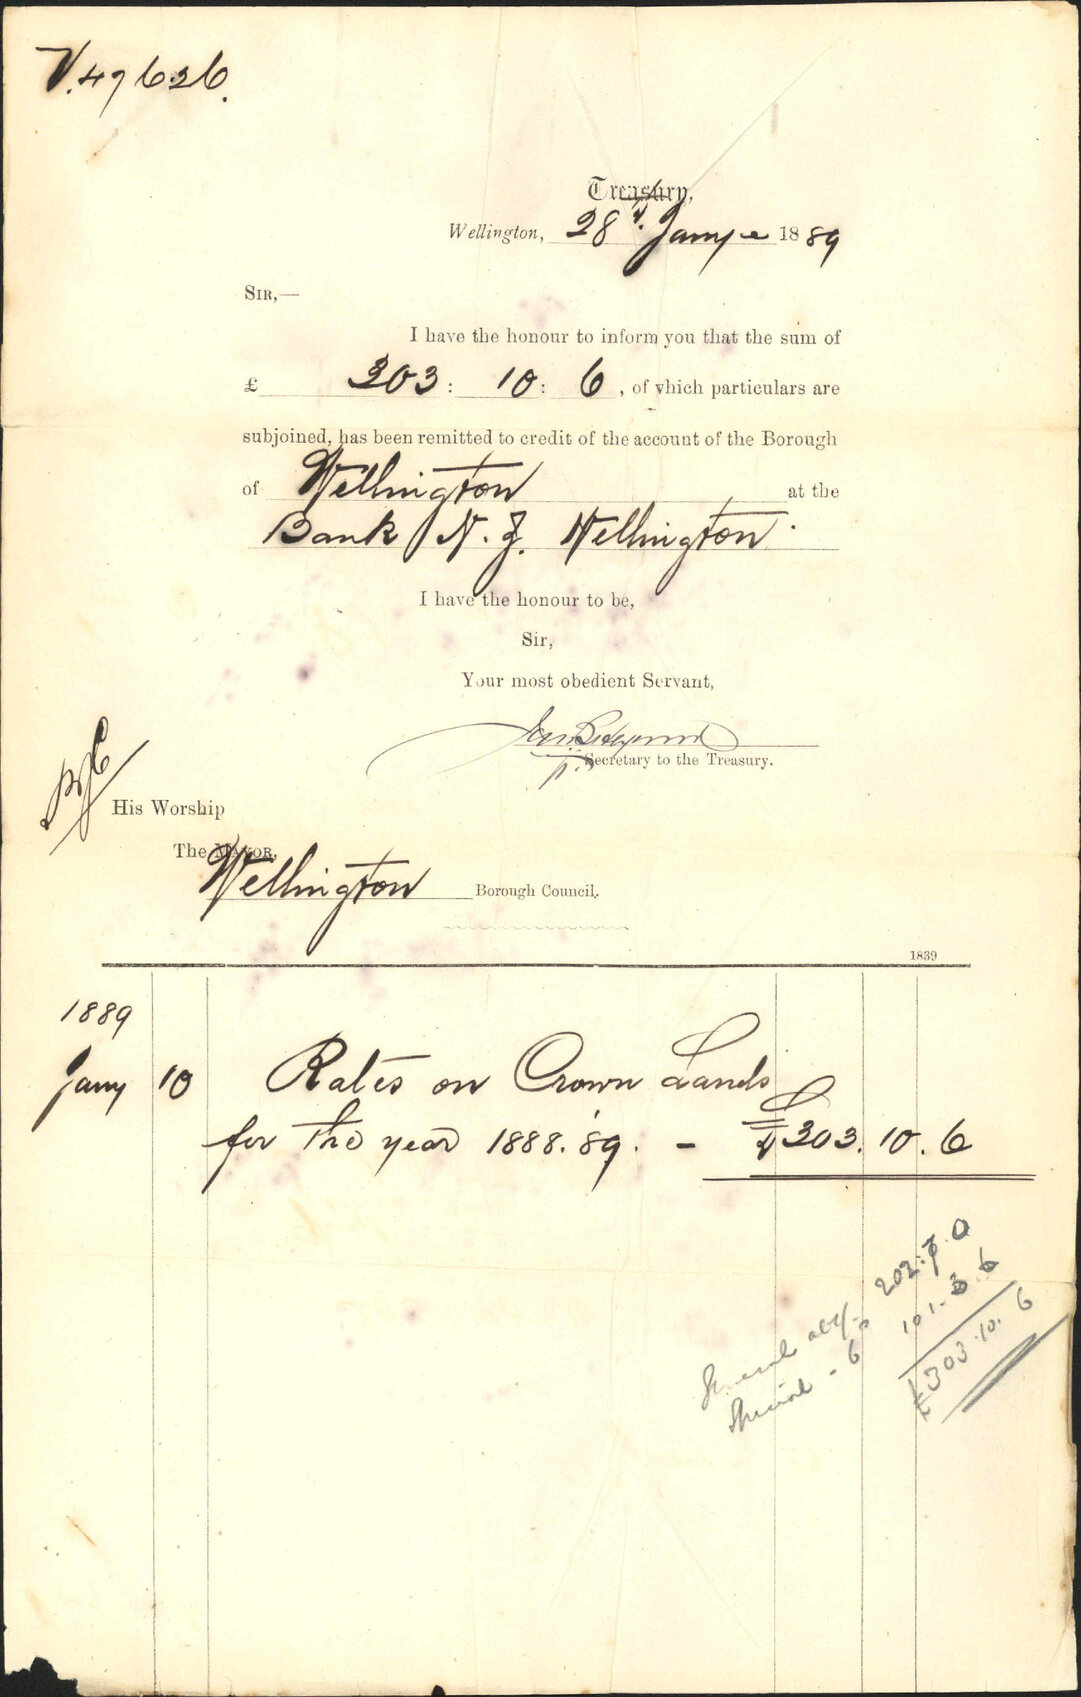 V.47626.
Treasury,
Wellington, 28th Jany 1889
SIR,—
I have the honour to inform you that the sum of
£ 303 : 10 : 6, of which particulars are
subjoined, has been remitted to credit of the account of the Borough
of Wellington at the
Bank N.Z. Wellington.
I have the honour to be,
Sir,
Your most obedient Servant,
Secretary to the Treasury.
His Worship
The MAYOR,
Wellington Borough Council.
1839
1889
Jany 10 Rates on Crown Lands
for the year 1888.89. - £303.10.6
General 202.7.0
Special - 6 101.3.6
£303.10.6